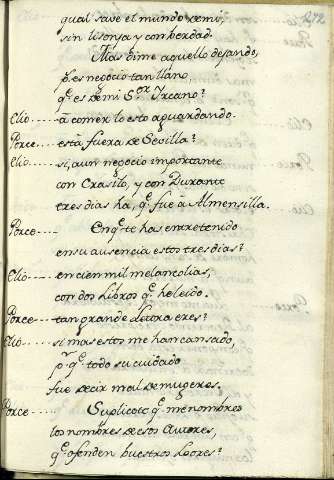 qual save el mundo de mi,
sin lisonja y con berdad.
Mas dime aquello dejando,
pr. es negocio tan llano
q.e es de mi S.or Ircano?
Clio ..... à comer lo esto aguardando.
Porce ..... està fuera de Sevilla?
Clio ..... si, à un negocio importante
con Crasilo, y con Durante
tres dias ha, q.e fue à Almensilla.
Porce ..... En q.e te has entretenido
en su ausencia estos tres dias?
Clio ..... en cien mil melancolias,
con dos libros q.e he leido.
Porce ..... tan grande letora eres?
Clio ..... si mas estos me han cansado,
p.r q.e todo su cuidado
fue decir mal de mugeres.
Porce ..... Suplicote q.e me nombres
los nombres de esos Autores,
q.e ofenden nuestros loores?